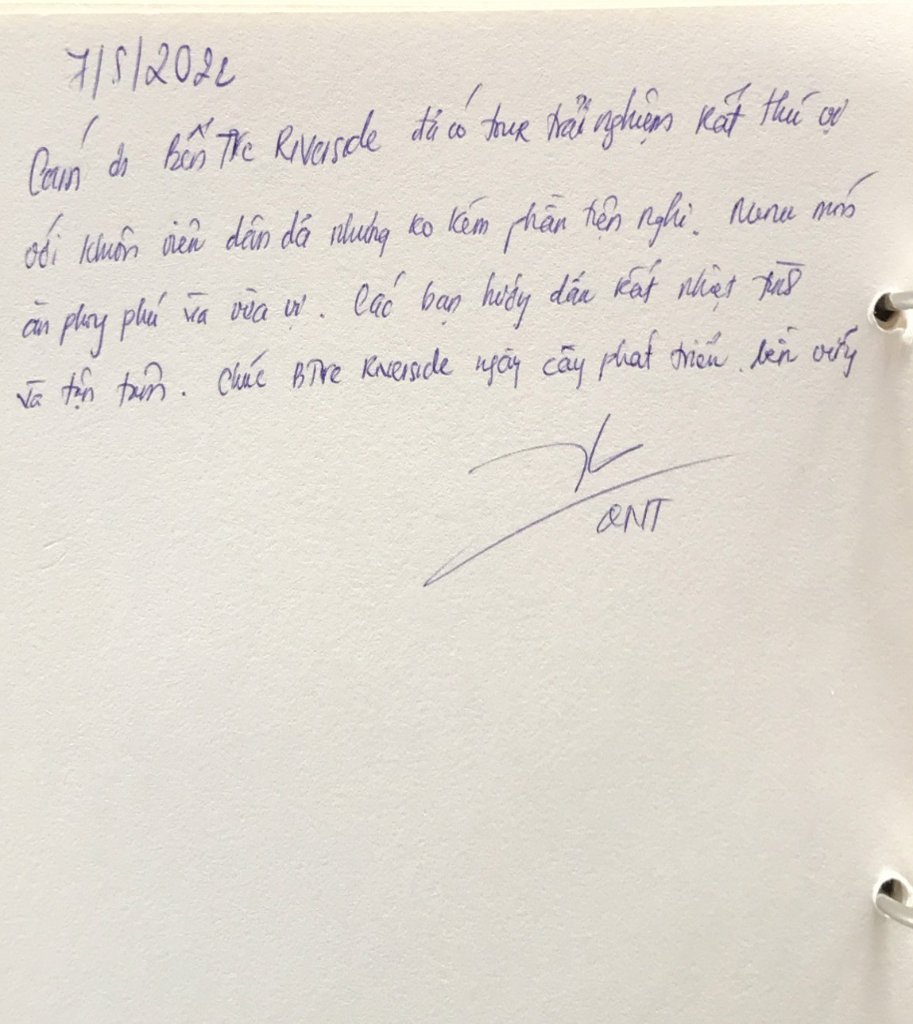 7/5/2022
Cảm ơn Bến Tre Riverside đã có tour trải nghiệm rất thú vị
với khuôn viên dân dã nhưng ko kém phần tiện nghi. Menu món
ăn phong phú và vừa vị. Các bạn hướng dẫn rất nhiệt tình
và tận tâm. Chúc BTre Riverside ngày càng phát triển bền vững
QNT